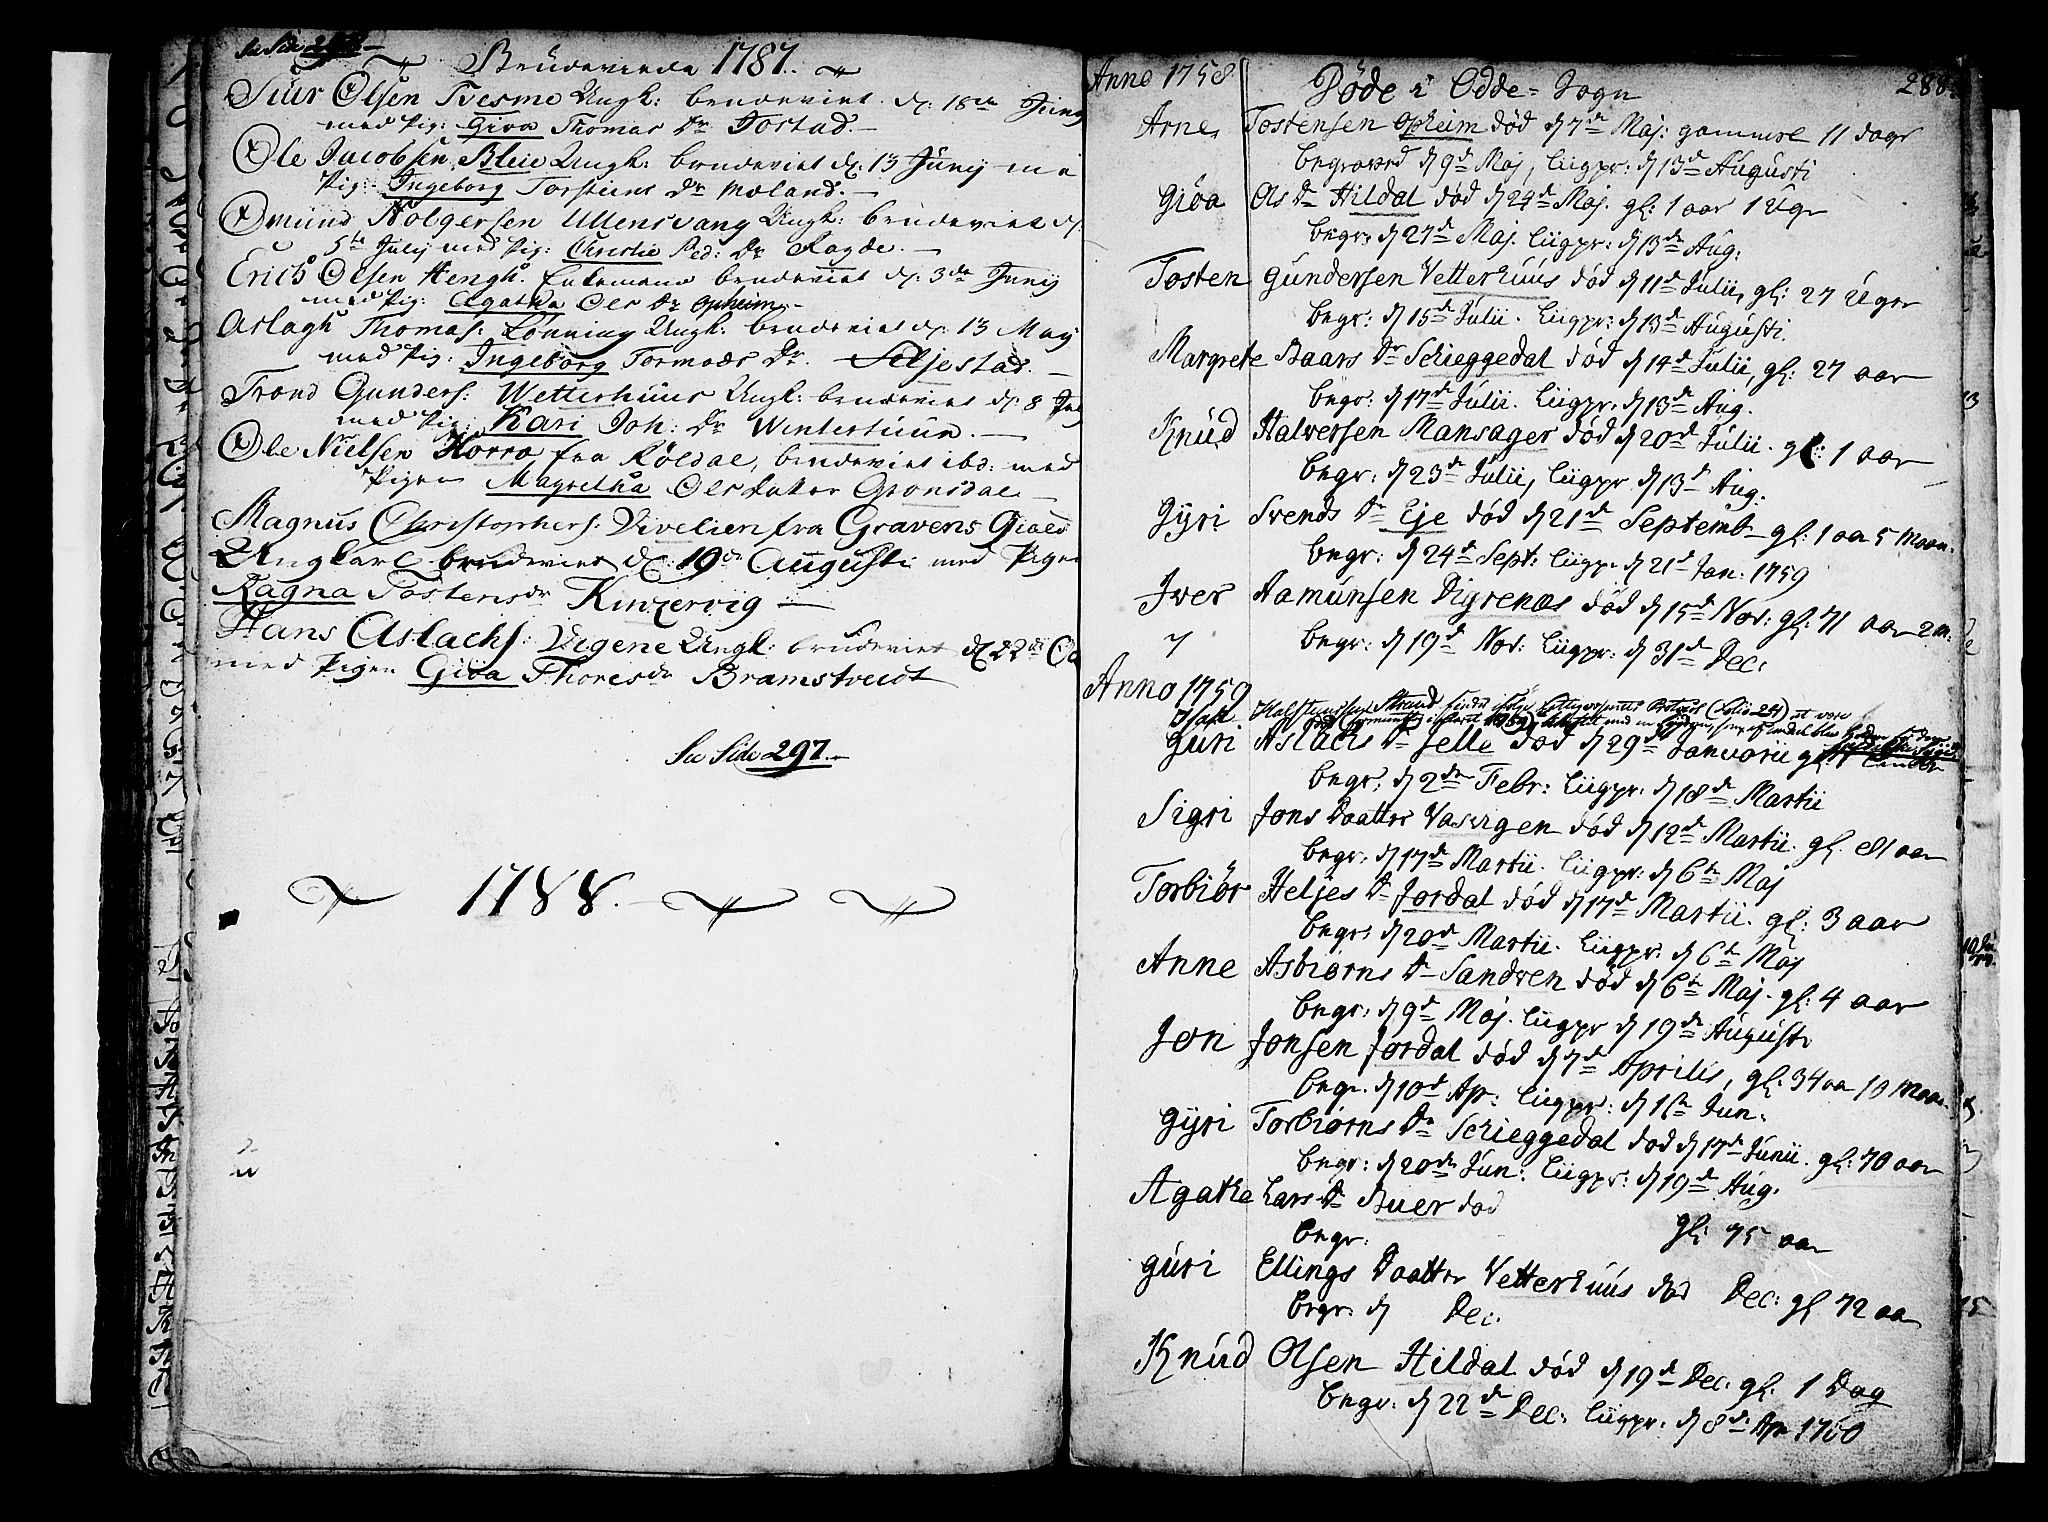 Brudeviede 1787.
Siur Olsen Tvesme Ungk: brudeviet d: 18de Junij
med Pig: Giøa Thomas Dr Jostad.
Ole Jacobsen Bleie Ungk: brudeviet d: 13 Junij me
Pig: Ingeborg Torstens Dr Moland.
Omund Holgersen Ullensvang Ungk: brudeviet d:
5te Julij med Pig: Christie Ped: Dr Ragde.
Erich Olsen Hengh. Enkemand brudeviet d: 3de Junij
med Pig: Agatha Ols Dr Opheim
Aslagh Thomas: Lønning Ungk: brudeviet d: 13 Maij
med Pig: Ingeborg Tormods Dr. Seljestad.
Trond Gunders: Wetterhuus Ungk: brudeviet d: 8 Jul
med Pig: Kari Joh: Dr Winterthuun.
Ole Nielsen Horra fra Røldal, brudeviet ibd: med
Pigen Magretha Ols Datter Gronsdal
Magnus Christophers: Vivelien fra Gravens Giæld
Ungkarl brudeviet d: 19de Augusti med Pigen
Ragna Tostensdr Kinzervig
Hans Aslachs: Digene Ungk: brudeviet d 22de Oc
med Pigen Giøa Thoresdr Bramstveidt
See Side 297.
1788.
Anno 1758 Døde i Odde-Sogn 288
Arne Tostensen Opheim død d 7de Maj: gammel 11 dage
begraved d 9de Maj, Liigpr: d 13de Augusti
Giøa Ols Dr Hildal død d 24de Maj. gl: 1 aar 1 Uge
begr: d 27de Maj. Liigpr: d 13de Aug:
Tosten Gundersen Vetterhuus død d 11de Julii, gl: 27 Uger
begr: d 15de Julii. Liigpr: d 13de Augusti.
Margrete Baars Dr Schieggedal død d 14de Julii, gl: 27 aar
begr: d 17de Julii. Liigpr: d 13de Aug.
Knud Halversen Mansager død d 20de Julii. gl: 1 aar
begr: d 23de Julii, Liigpr d 13de Aug.
Gyri Svends Dr Eje død d 21de Septemb gl: 1 aa 5 Maan.
begr: d 24de Sept: Liigp: d 21de Jan: 1759
Iver Aamunsen Digrenæs død d 15de Nov: gl: 71 aar 2 M:
7 begr: d 19de Nov: Liigpr: d 31de Dec:
Anno 1759
Guri Aslachs Dr Jelle død d 29de Januarii gl:
begr: d 2den Febr: Liigpr: d 18de Martii
Sigri Jons Daatter Vasvigen død d 12de Martii. gl. 81 aar
begr. d 17de Martii. Liigpr: d 6te Maj
Torbiør Heljes Dr Jordal død d 17de Martii. gl: 3 aar
begr: d 20de Martii. Liigpr: d 6te Maj
Anne Asbiørns Dr Sandven død d 6te Maj. gl: 4 aar
begr: d 9de Maj. Liigpr d 19de Augusti
Jon Jonsen Jordal død d 7de Aprilis, gl: 34 aa 10 Maan.
begr. d 10de Ap: Liigpr: d 1ste Jun.
Gyri Torbiørns Dr Schieggedal død d 17de Junii. gl: 70 aar
begr: d 20de Jun: Liigpr: d 19de Aug.
Agathe Lars Dr Buer død
begr: gl: 75 aar
Guri Ellings Daatter Vetterhuus død Dec: gl 72 aa
begr: d Dec:
Knud Olsen Hildal død d 19de Dec: gl: 1 Dag
begr: d 22de Dec: Liigpr: d 8de Ap 1760